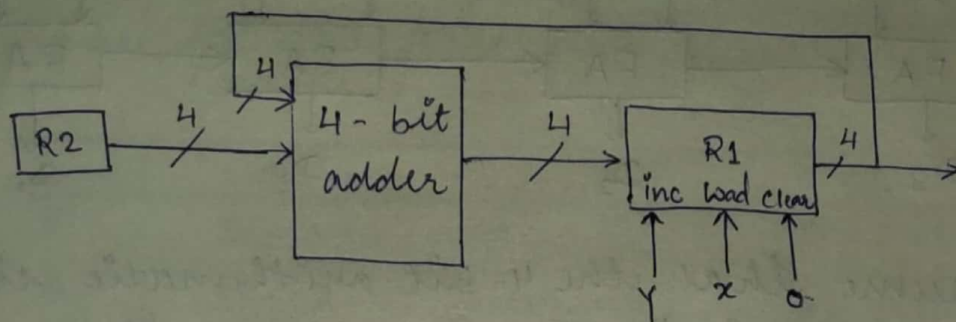 4
4
4
4
R2
4 - bit
adder
R1
inc load clear
Y x 0